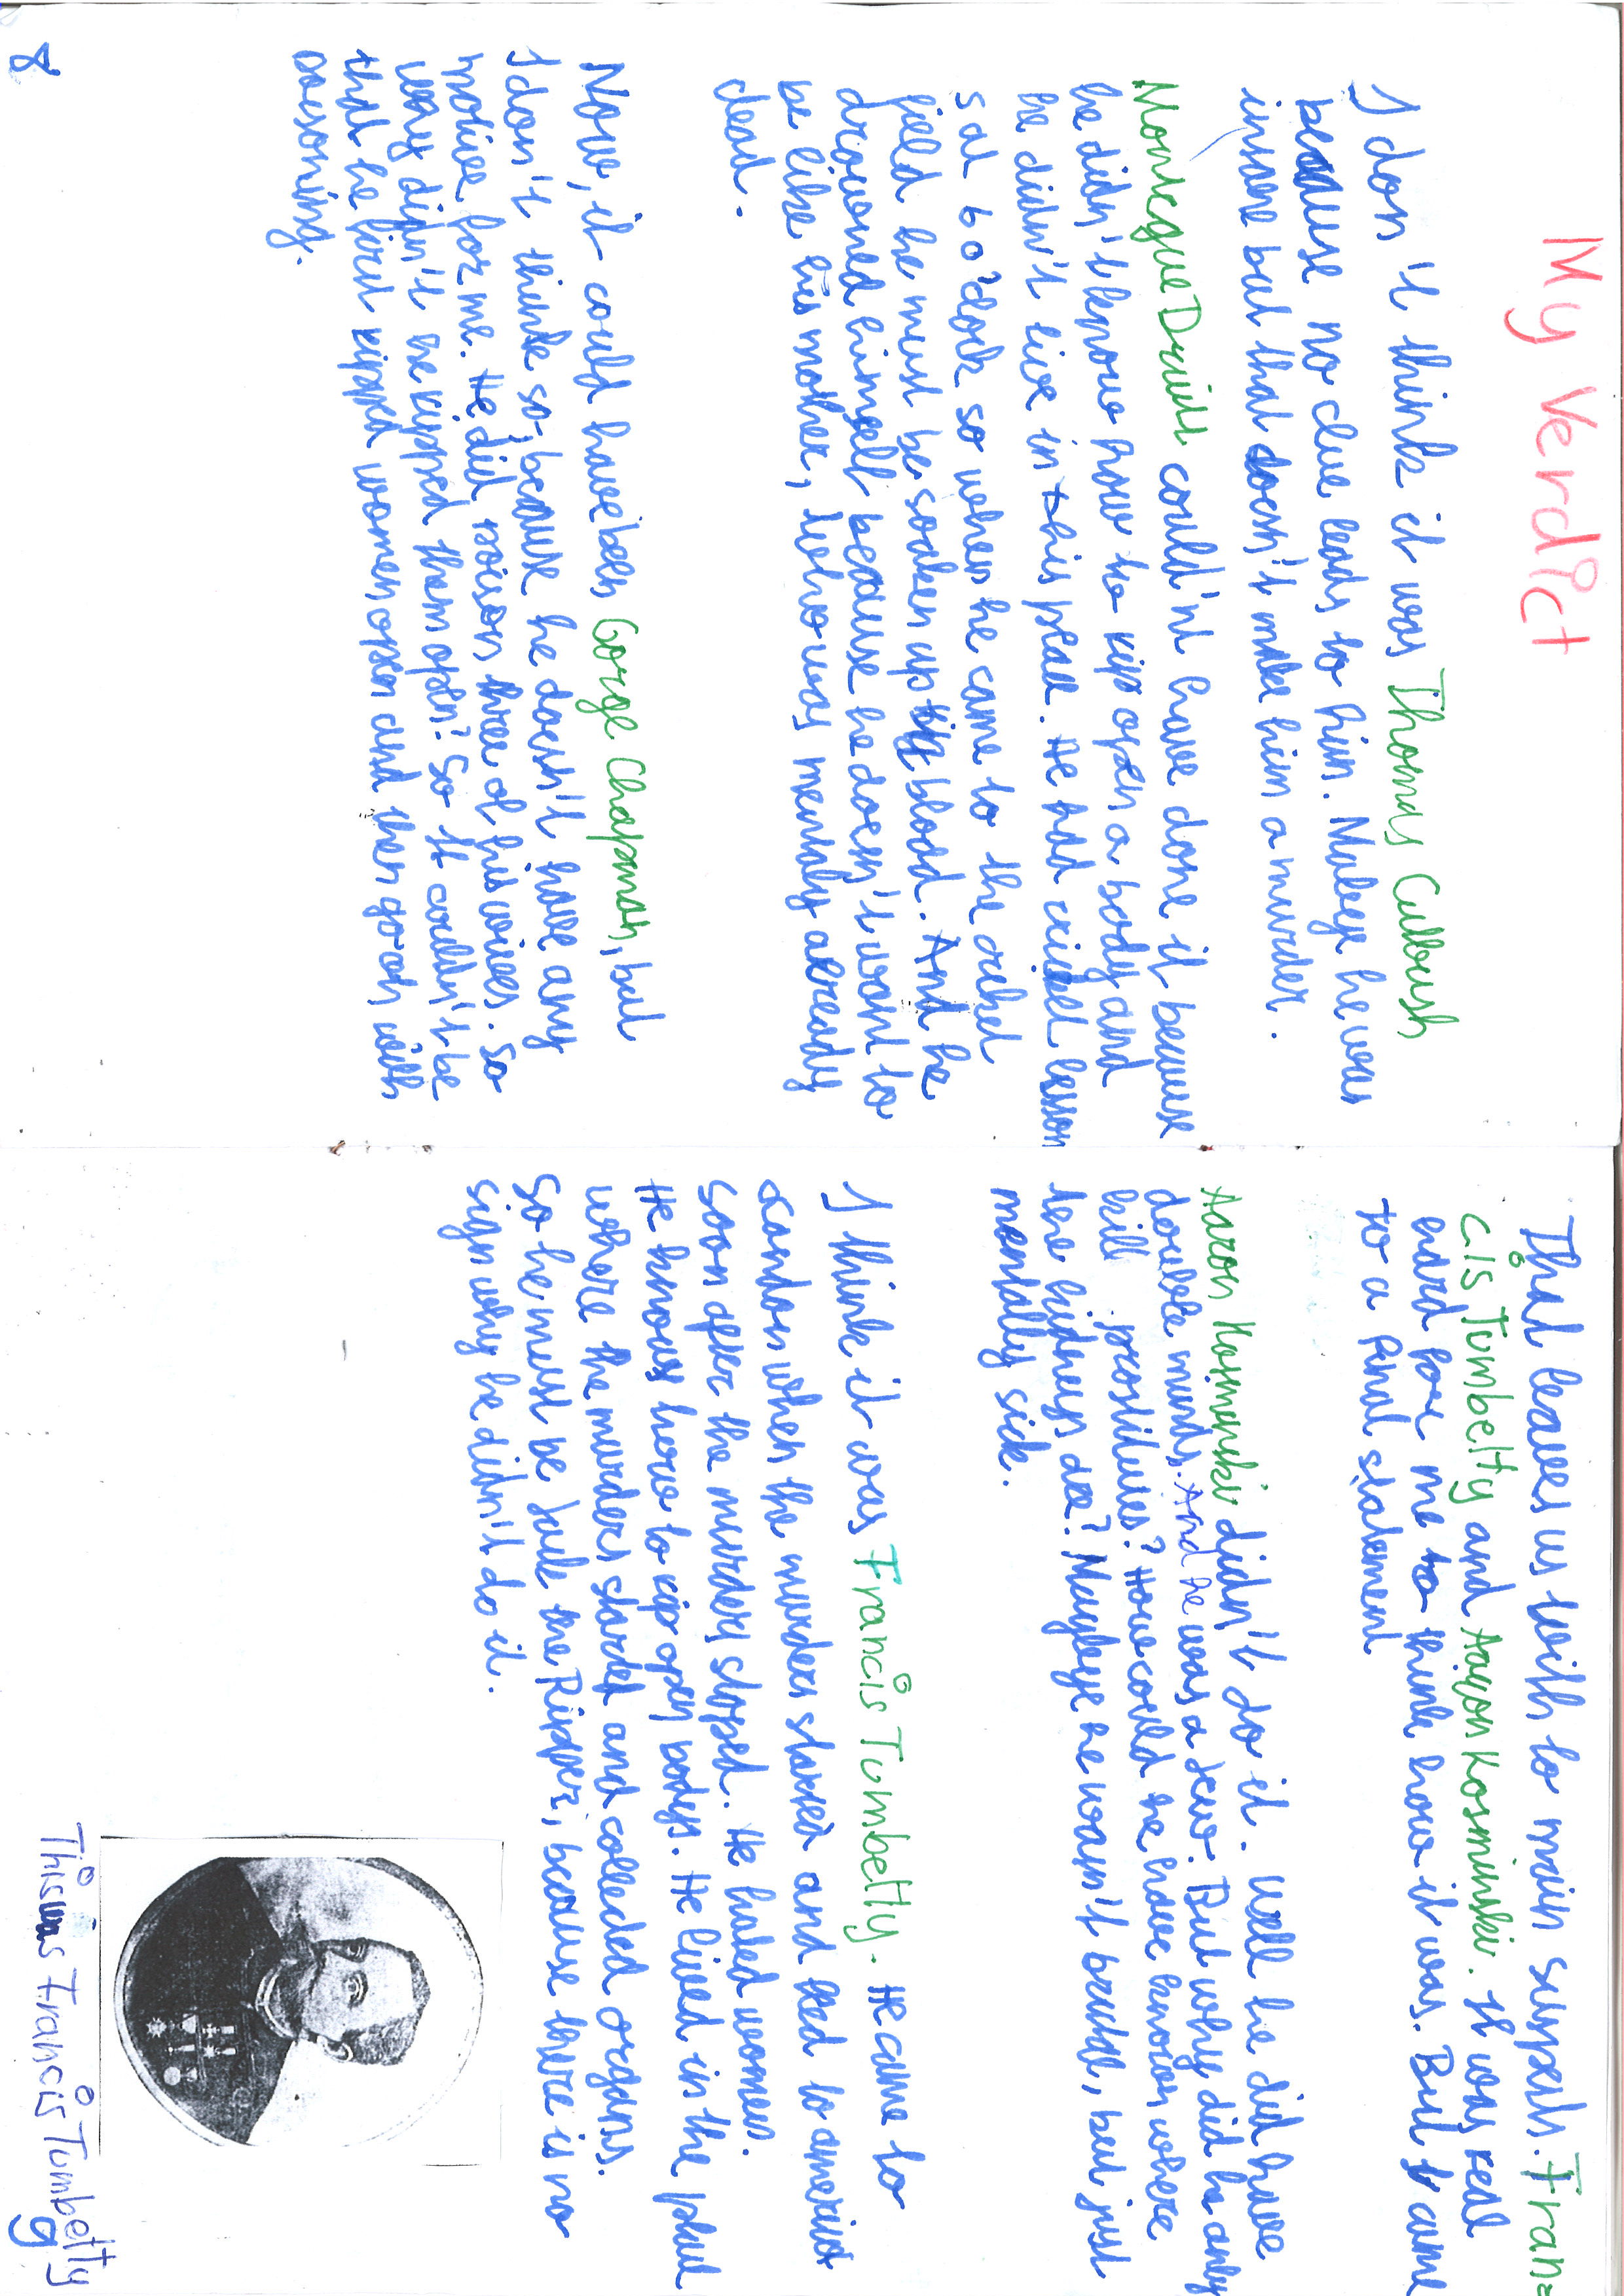 My Verdict
I don't think it was Thomas Cutbush
because no clue leads to him. Maybe he was
insane but that doesn't make him a murder.
Montegue Druitt could'nt have done it because
he didn't know how to rip open a body and
he didn't live in this peat. He had cricket lesson
sat 6 o'clock so when he came to the cricket
field he must be soaken up in blood. And he
drowned himself because he doesn't want to
be like his mother, who was mentaly already
dead.
Now, it could have been Gorge Chapman, but
I don't think so because he doesn't have any
motive for me. He did poison three of his wives. So
why didn't he ripped them open? So it couldn't be
that he first ripped women open and then go on with
poisoning.
8
That leaves us with to main suspects. Fran=
cis Tumbelty and Aaron Kosminski. It was real
hard for me to think how it was. But I came
to a final statement
Aaron Kosminski didn't do it. Well he did have
double minds. And he was a Jew. But why did he only
kill prostitutes? How could he have known where
the kidneys are? Maybye he wasn't brutal, but just
mentally sick.
I think it was Francis Tumbelty. He came to
London when the murders started and fled to america
soon after the murders stoped. He hated women.
He knows how to rip open bodys. He lived in the place
where the murders started and collected organs.
So he must be Jack the Ripper, because there is no
sign why he didn't do it.
This was Francis Tumbelty
9